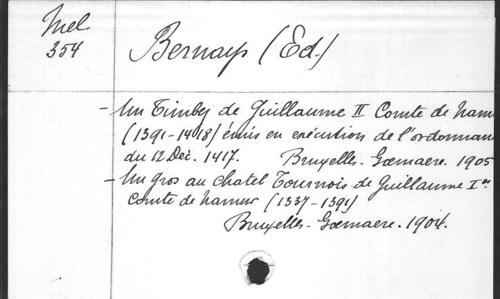 Mel
354
Bernays (Ed.)
- Un Timbej de Guillaume II Comte de Nam
(1391-1418) émis en exécution de l'ordonnan
du 12 Déc. 1417. Bruxelles. Goemaere. 1905
- Un gros au chatel Tournois de Guillaume Ier
Comte de Namur (1337-1391)
Bruxelles. Goemaere. 1904.